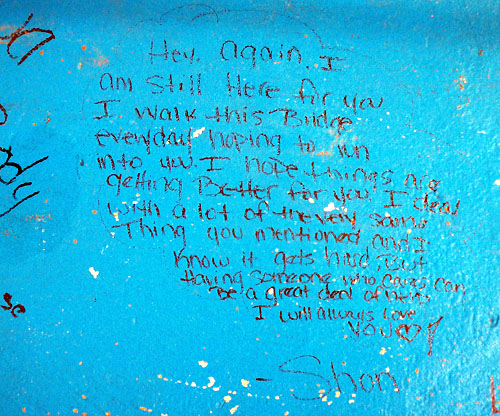 Hey, again. I
am Still Here for you
I walk this Bridge
everyday hoping to run
into you I hope things are
getting Better for you I deal
with a lot of the very same
Thing you mentioned, and I
know it gets hard, But
Having someone who cares can
Be a great deal of help
I will always Love
YOU
-Shon